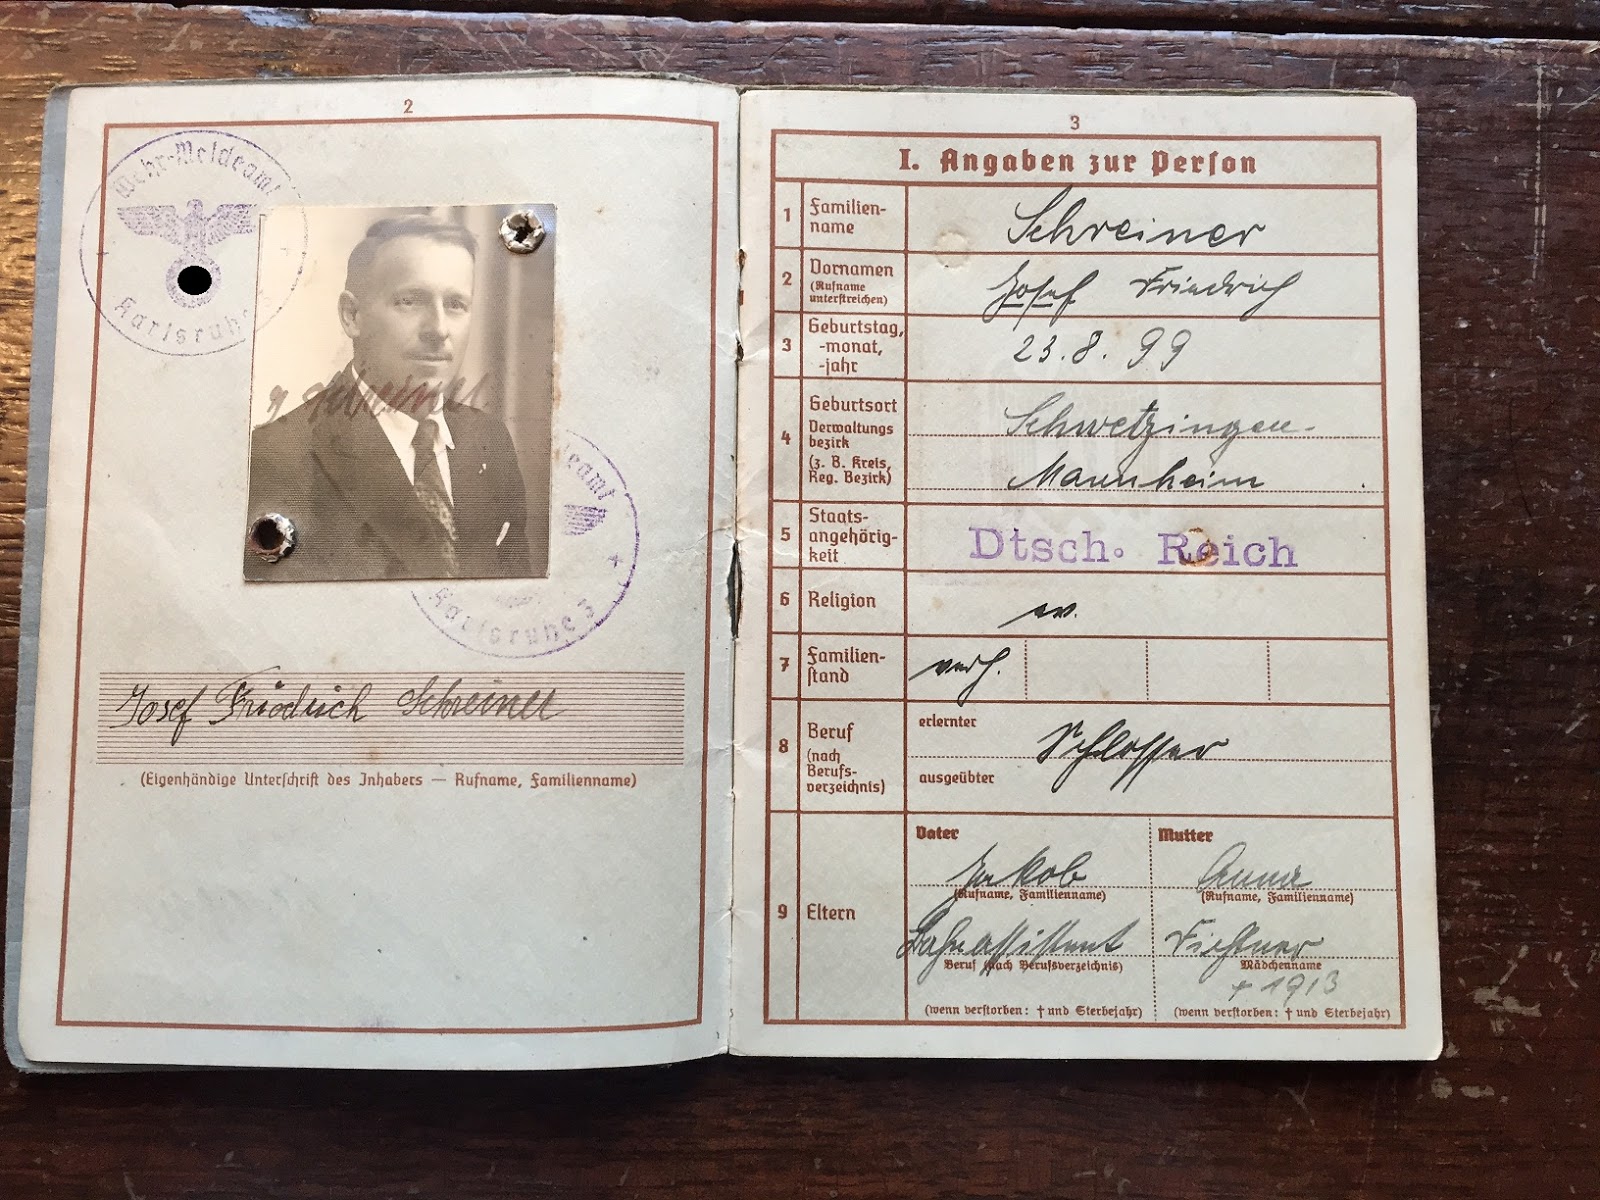 2
Wehr-Meldeamt
Karlsruhe
Schreiner
eamt
Karlsruhe 3
Josef Friedrich Schreiner
(Eigenhändige Unterschrift des Inhabers — Rufname, Familienname)
3
I. Angaben zur Person
1 Familien-
name
Schreiner
2 Vornamen
(Rufname
unterstreichen)
Josef Friedrich
3 Geburtstag,
-monat,
-jahr
23.8.99
4 Geburtsort
Verwaltungs
bezirk
(z. B. Kreis,
Reg. Bezirk)
Schwetzingen-
Mannheim
5 Staats-
angehörig-
keit
Dtsch. Reich
6 Religion
ev.
7 Familien-
stand
verh.
8 Beruf
(nach
Berufs-
verzeichnis)
erlernter
Schlosser
ausgeübter
9 Eltern
Vater
Jakob
(Rufname, Familienname)
Bahnassistent
Beruf (nach Berufsverzeichnis)
(wenn verstorben: † und Sterbejahr)
Mutter
Anna
(Rufname, Familienname)
Mädchenname
† 1913
(wenn verstorben: † und Sterbejahr)